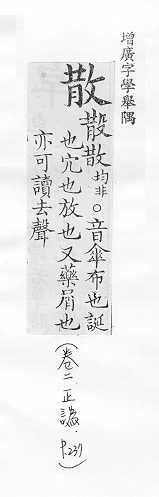 增廣字學舉隅
散
㪚散均非○音傘布也誕
也宂也放也又藥屑也
亦可讀去聲
(卷二.正譌.p.237)